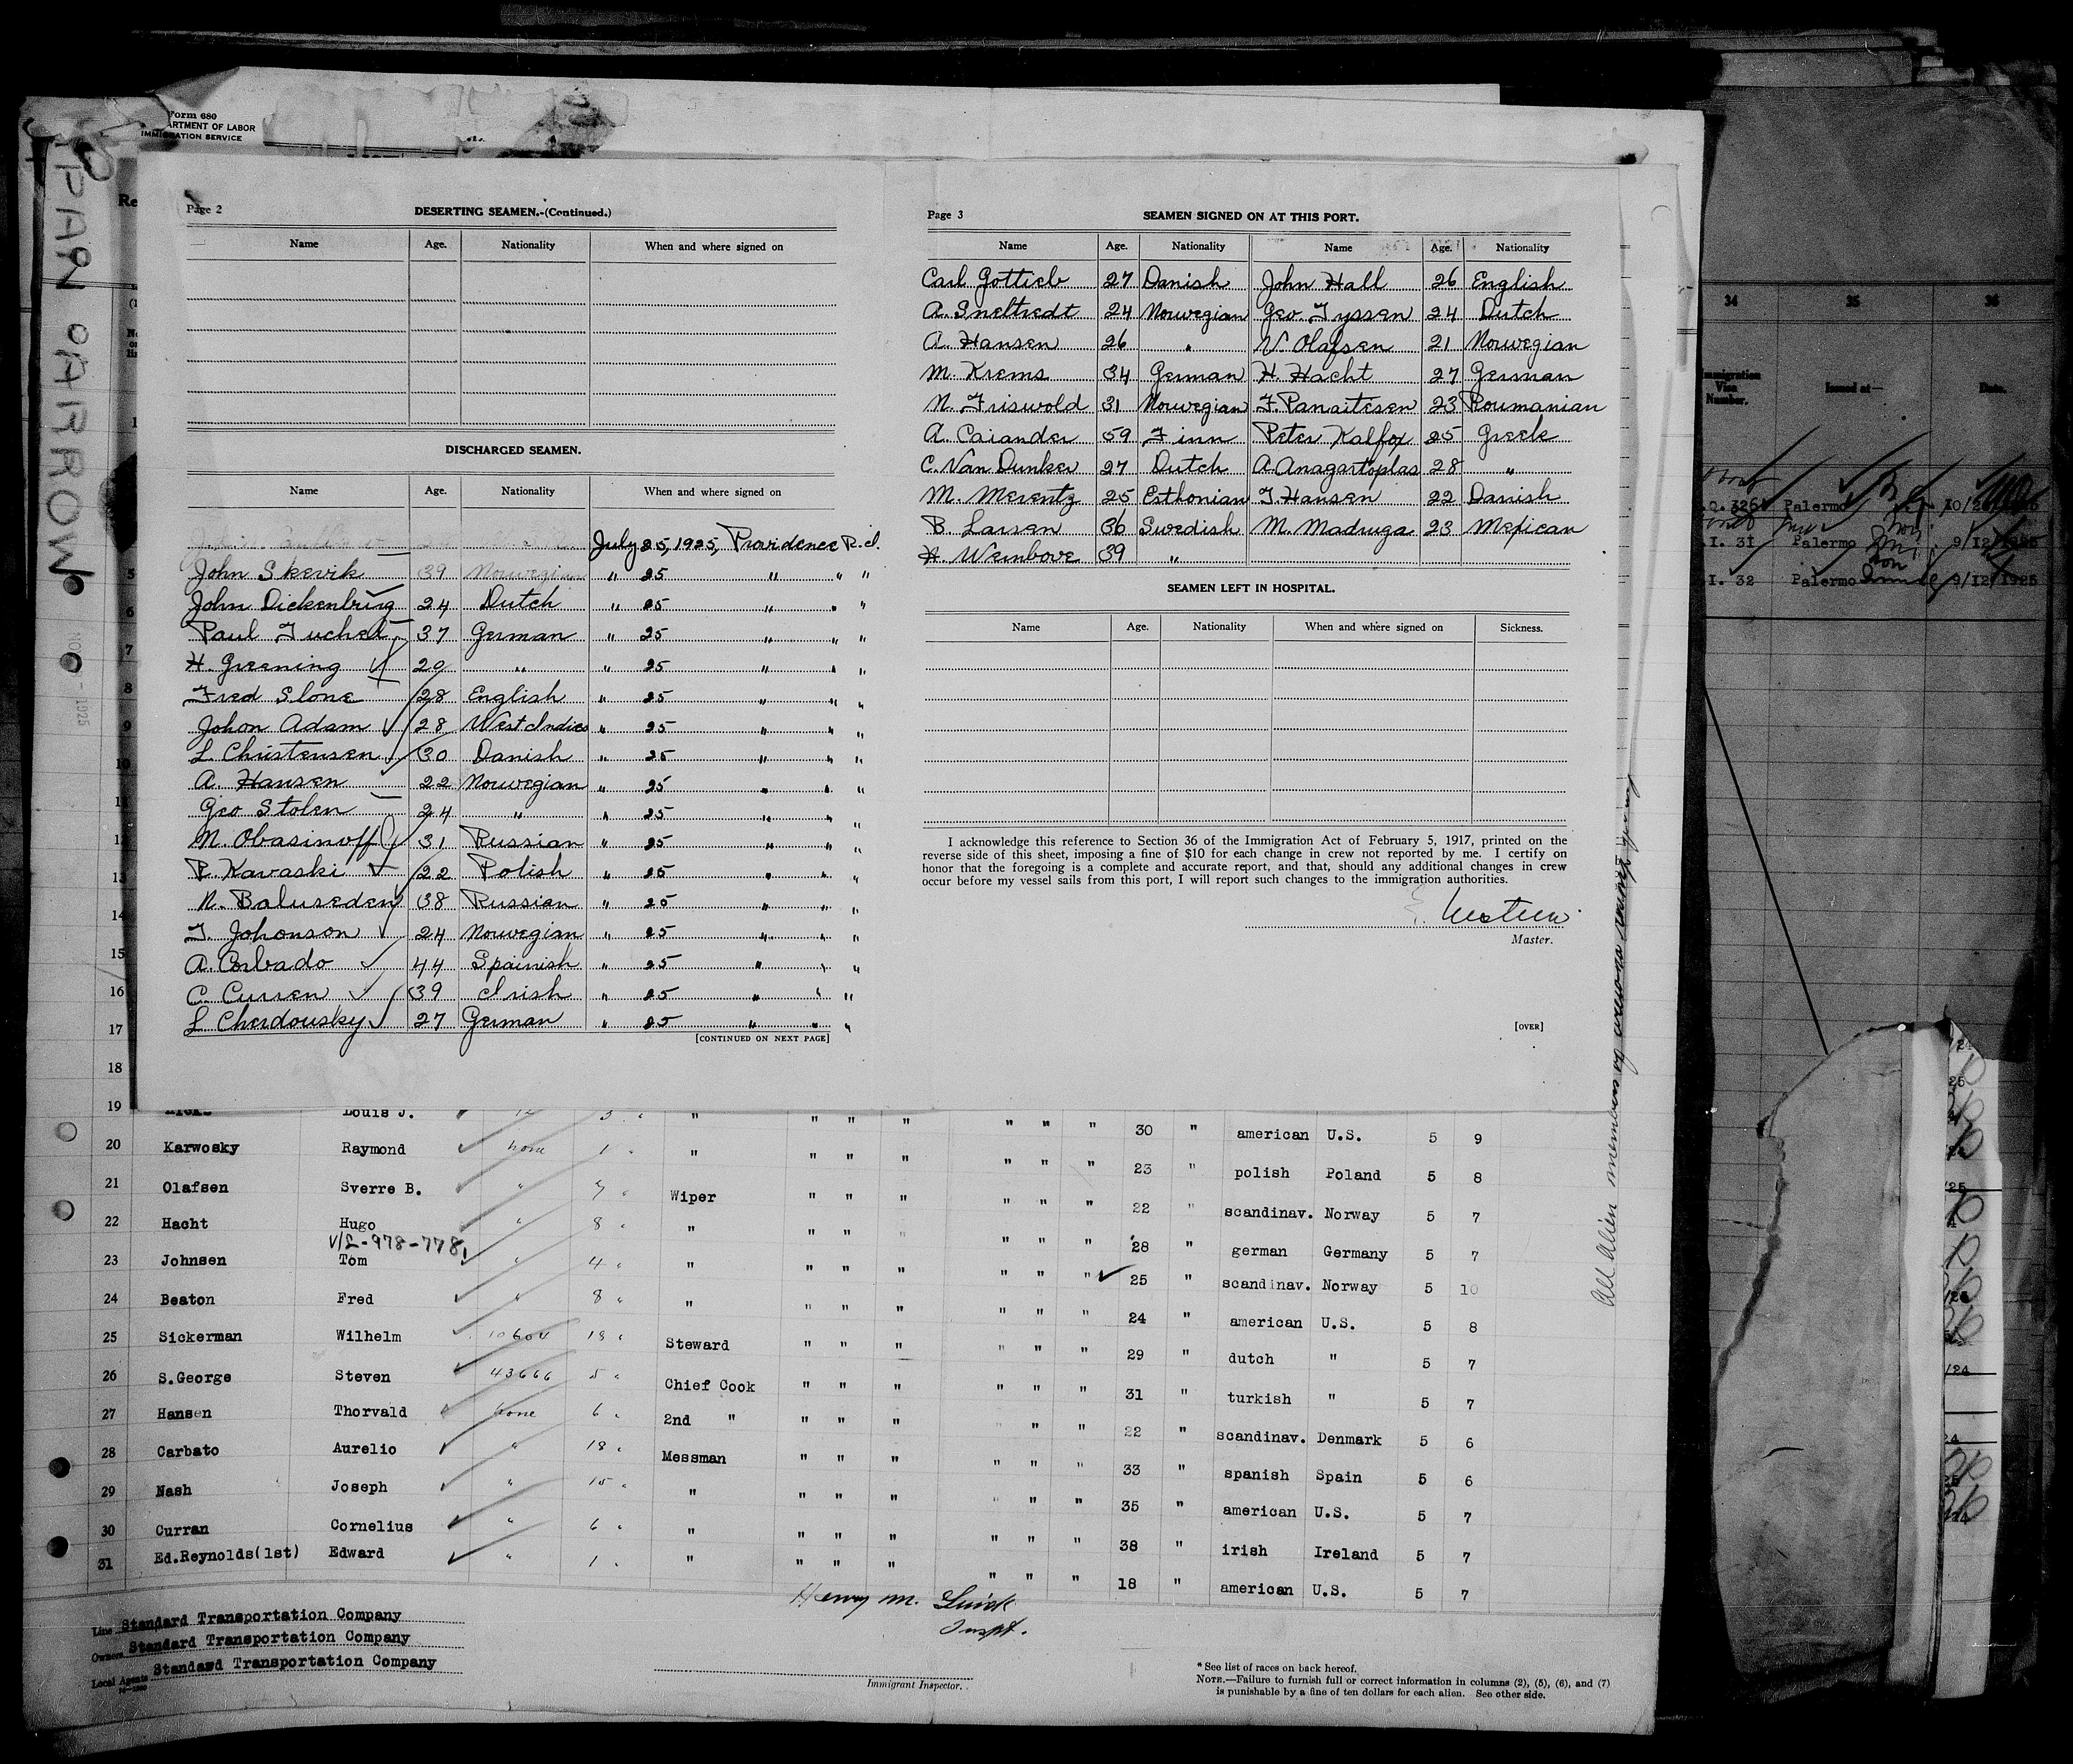 Form 680
ARTMENT OF LABOR
IMMIGRATION SERVICE
PAN PARROW
NO - 1925
Page 2
DESERTING SEAMEN.-(Continued.)
Name Age. Nationality When and where signed on
DISCHARGED SEAMEN.
Name Age. Nationality When and where signed on
July 25, 1925, Providence R.I.
John Skevik 39 Norwegian " 25 " " "
John Dickenbring 24 Dutch " 25 " " "
Paul Tuchel 37 German " 25 " " "
H. Greening 20 " " 25 " " "
Fred Slone 28 English " 25 " " "
Johon Adam 28 West Indies " 25 " " "
L. Christensen 30 Danish " 25 " " "
A. Hansen 22 Norwegian " 25 " " "
Geo Stolen 24 " " 25 " " "
N. Obasinoff 31 Russian " 25 " " "
P. Kavaski 22 Polish " 25 " " "
N. Baluseden 38 Russian " 25 " " "
T. Johonson 24 Norwegian " 25 " " "
A. Corbado 44 Spainish " 25 " " "
C. Curren 39 Irish " 25 " " "
L Cherdousky 27 German " 25 " " "
[CONTINUED ON NEXT PAGE]
Page 3
SEAMEN SIGNED ON AT THIS PORT.
Name Age. Nationality Name Age. Nationality
Carl Gottieb 27 Danish John Hall 26 English
A. Sneltredt 24 Norwegian Geo. Tyssen 24 Dutch
A. Hansen 26 " V. Olafsen 21 Norwegian
M. Krems 34 German H. Hacht 27 German
N. Friswold 31 Norwegian F. Panaitesen 23 Roumanian
A. Caiander 59 Finn Peter Kalfox 25 Greek
C. Van Dunker 27 Dutch A. Anagartoplas 28 "
M. Merentz 25 Esthonian T. Hansen 22 Danish
B. Larsen 36 Swedish M. Madruga 23 Mexican
A. Weinbove 39 "
SEAMEN LEFT IN HOSPITAL.
Name Age. Nationality When and where signed on Sickness.
I acknowledge this reference to Section 36 of the Immigration Act of February 5, 1917, printed on the
reverse side of this sheet, imposing a fine of $10 for each change in crew not reported by me. I certify on
honor that the foregoing is a complete and accurate report, and that, should any additional changes in crew
occur before my vessel sails from this port, I will report such changes to the immigration authorities.
Master.
[OVER]
34 35 36
Immigration Visa Number. Issued at— Date.
326 Palermo 10/2
I. 31 Palermo 9/12/1925
I. 32 Palermo 9/12/1925
5
6
7
8
9
10
11
12
13
14
15
16
17
18
19 Louis J. 12 3 " " " " " " " " 30 " american U.S. 5 9
20 Karwosky Raymond none 1 " " " " " " " " 23 " polish Poland 5 8
21 Olafsen Sverre B. " 7 " Wiper " " " " " " 22 " scandinav. Norway 5 7
22 Hacht Hugo " 8 " " " " " " " " 28 " german Germany 5 7
V/L-978-778,
23 Johnsen Tom " 4 " " " " " " " " 25 " scandinav. Norway 5 10
24 Beaton Fred " 8 " " " " " " " " 24 " american U.S. 5 8
25 Sickerman Wilhelm 10604 18 " Steward " " " " " " 29 " dutch " 5 7
26 S.George Steven 43666 5 " Chief Cook " " " " " " 31 " turkish " 5 7
27 Hansen Thorvald none 6 " 2nd " " " " " " " 22 " scandinav. Denmark 5 6
28 Carbato Aurelio " 18 " Messman " " " " " " 33 " spanish Spain 5 6
29 Nash Joseph " 15 " " " " " " " " 35 " american U.S. 5 7
30 Curran Cornelius " 6 " " " " " " " " 38 " irish Ireland 5 7
31 Ed.Reynolds(1st) Edward " 1 " " " " " " " " 18 " american U.S. 5 7
All alien members of
Line Standard Transportation Company
Owners Standard Transportation Company
Local Agents Standard Transportation Company
Henry M.
Inspt.
Immigrant Inspector.
* See list of races on back hereof.
NOTE.—Failure to furnish full or correct information in columns (2), (5), (6), and (7)
is punishable by a fine of ten dollars for each alien. See other side.